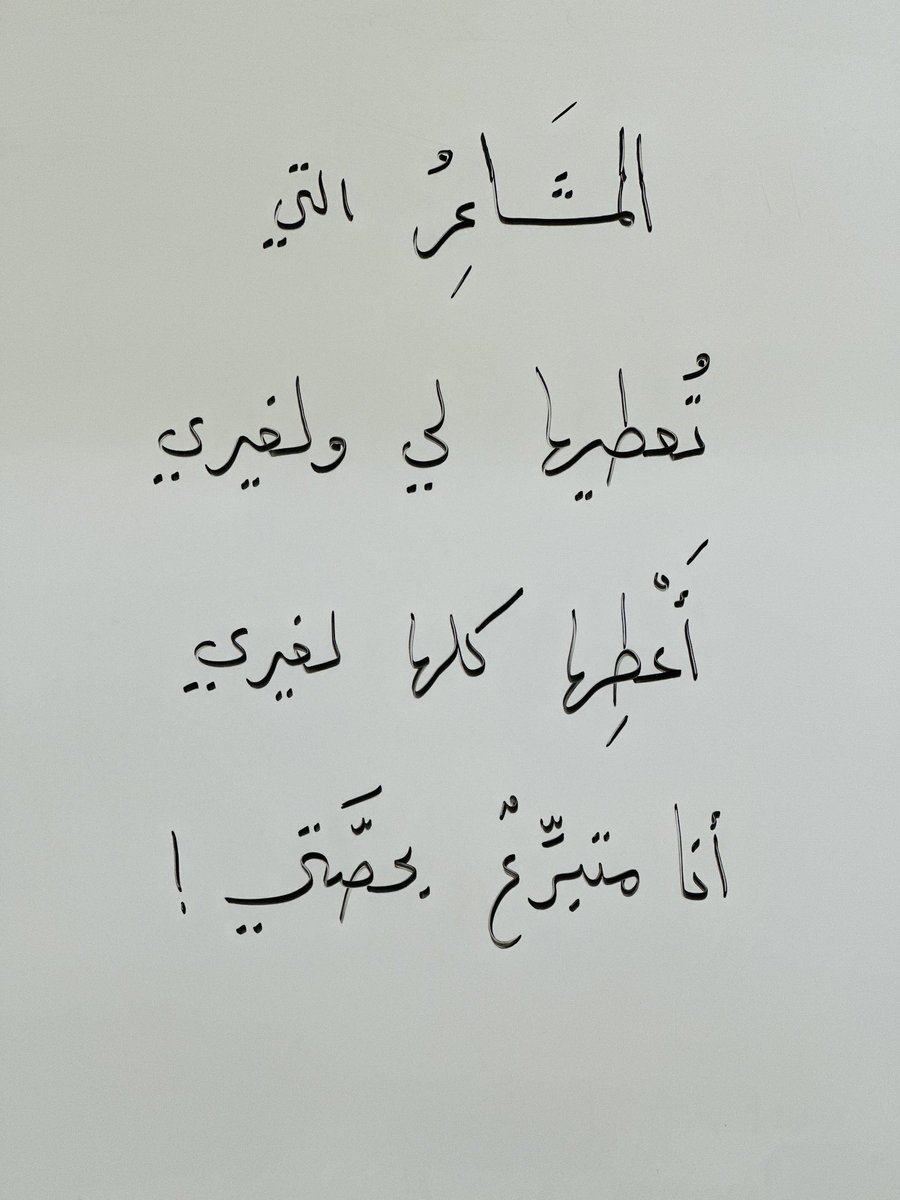 المشَاعِرُ التي
تُعطيها لي ولغيري
أَعْطِها كلها لغيري
أنا متبرِّعٌ بحصَّتي !